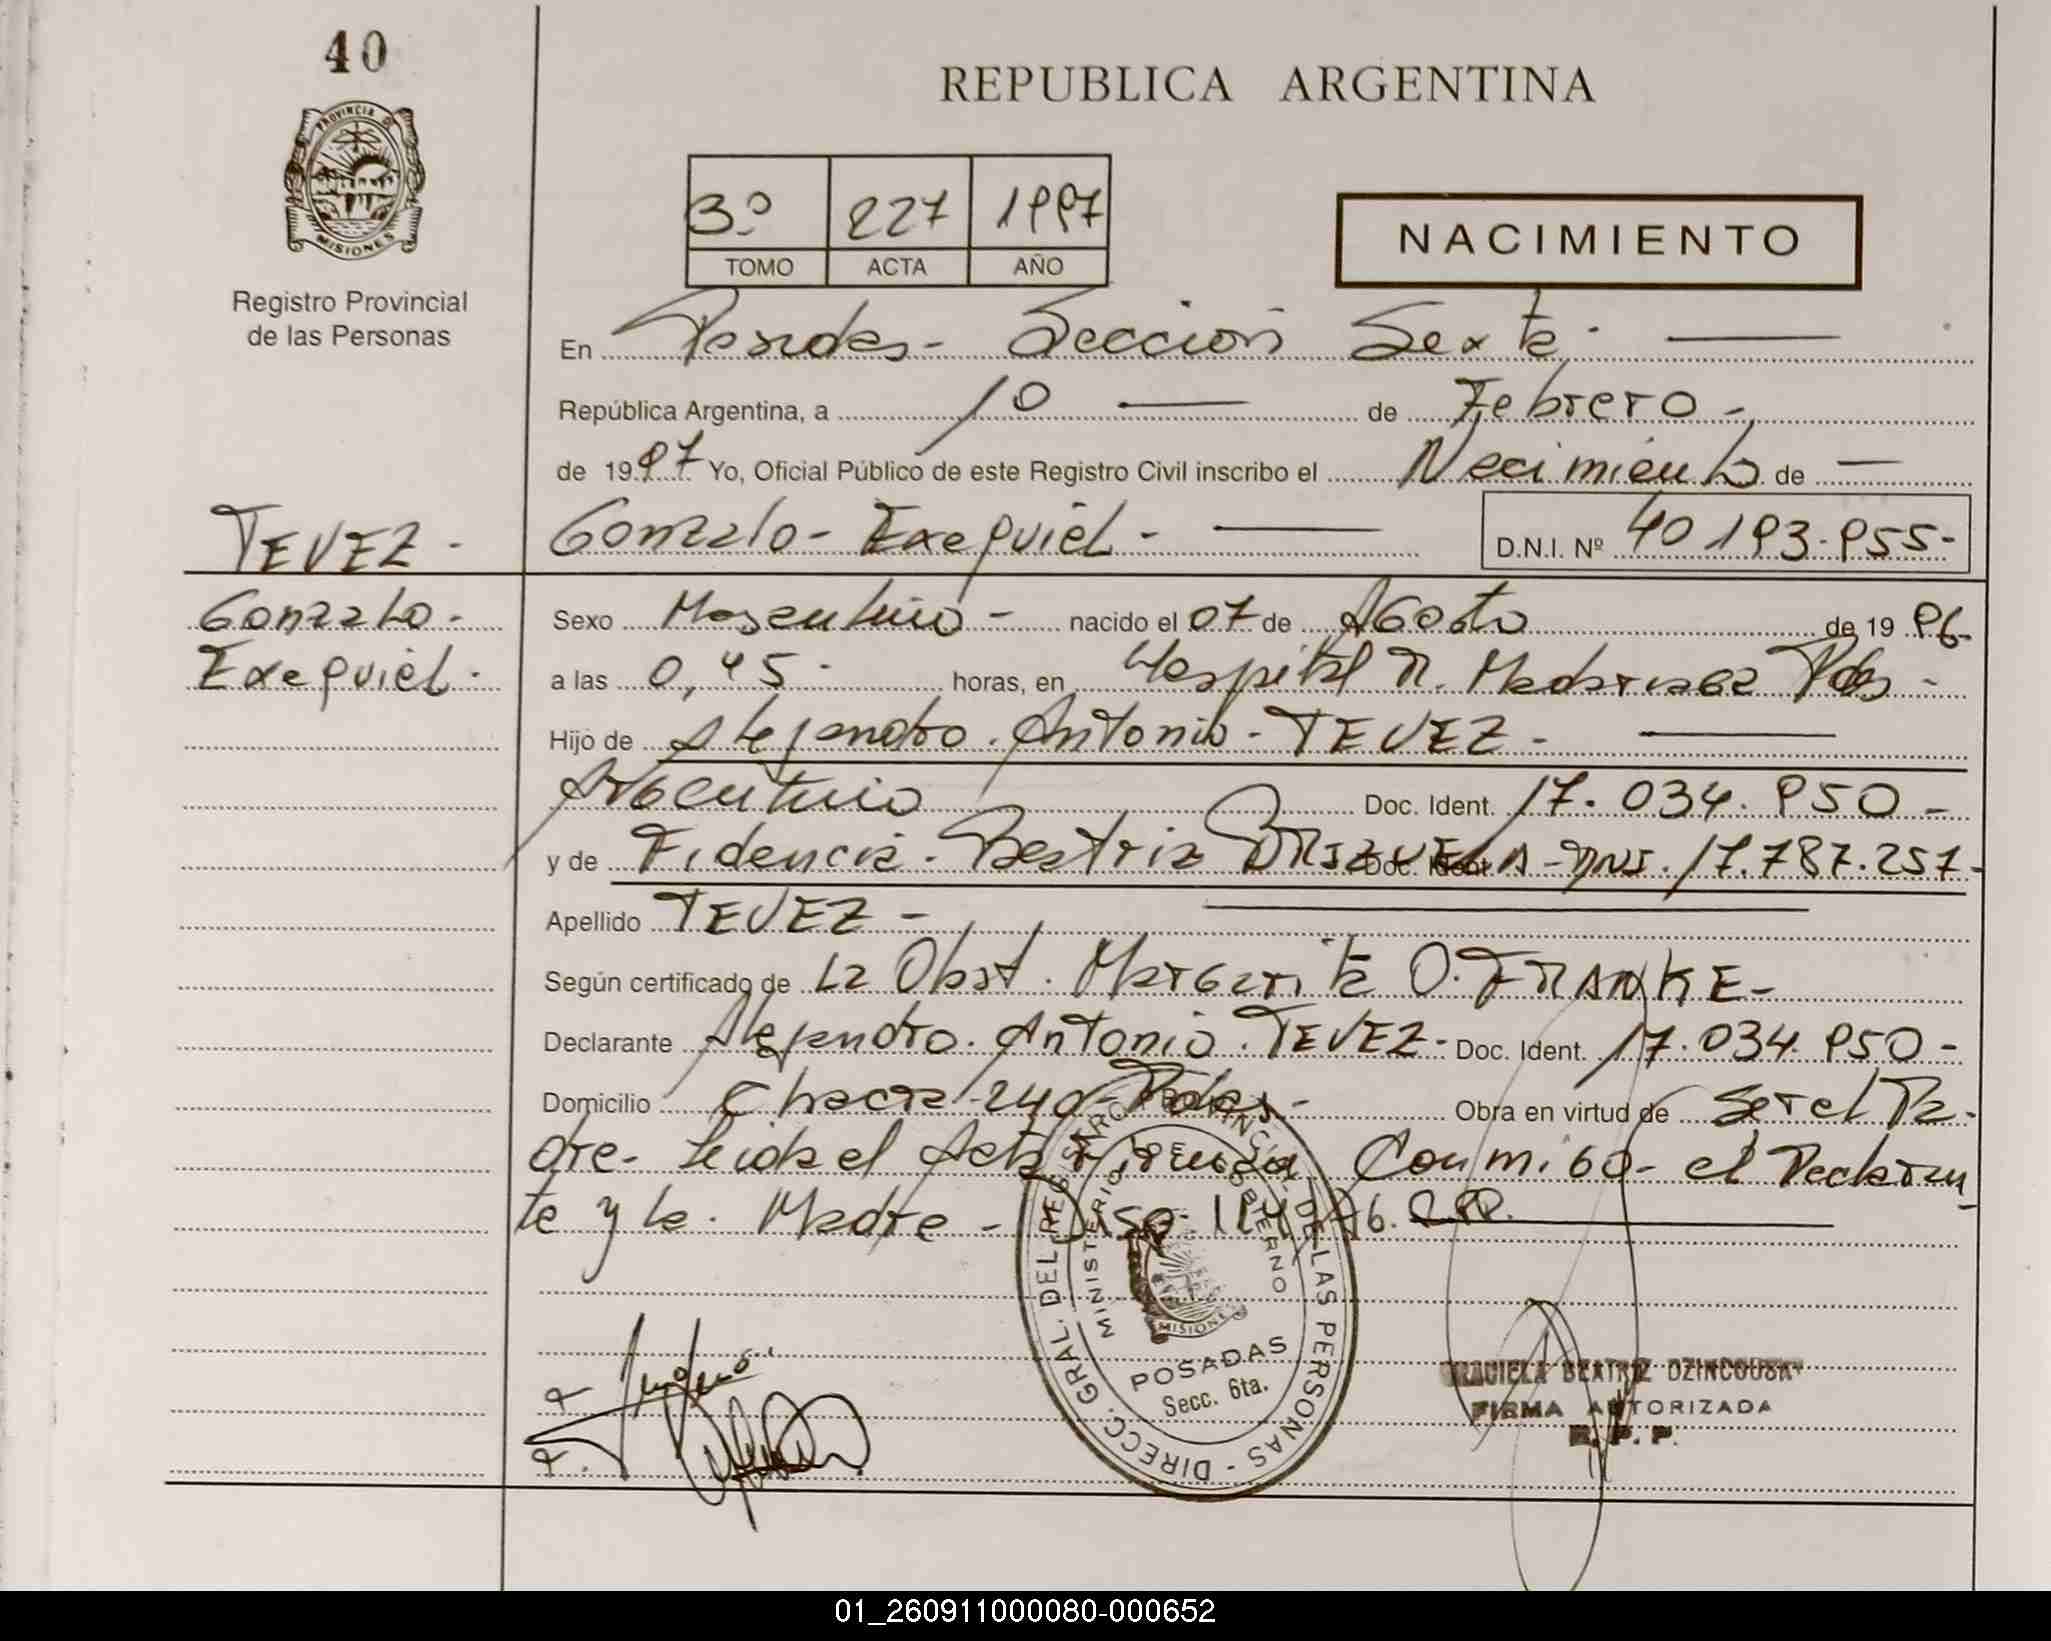 40
PROVINCIA DE
MISIONES
Registro Provincial
de las Personas
REPUBLICA ARGENTINA
3º 227 1997
TOMO ACTA AÑO
NACIMIENTO
En Posadas - Sección Sexta.
República Argentina, a 10 de Febrero -
de 1997 Yo, Oficial Público de este Registro Civil inscribo el Nacimiento de
TEVEZ - Gonzalo - Exequiel - D.N.I. Nº 40193.955-
Gonzalo - Sexo Masculino - nacido el 07 de Agosto de 1996.
Exequiel - a las 0,45 horas, en Hospital R. Madariaga Pdas -
Hijo de Alejandro. Antonio - TEVEZ -
Argentino Doc. Ident. 17.034.950 -
y de Fidencia. Beatriz BRIZUELA - DNI. 17.787.257-
Apellido TEVEZ -
Según certificado de La Obst. Margarita O. FRANKE -
Declarante Alejandro. Antonio. TEVEZ - Doc. Ident. 17.034.950 -
Domicilio Chacra 240 - Pdas - Obra en virtud de Ser el Pa-
dre - Leida el Acta Firman Conmigo - el Declaran-
te y la Madre -
DIRECC. GRAL. DEL REGISTRO PROVINCIAL DE LAS PERSONAS -
MINISTERIO DE GOBIERNO
MISIONES
POSADAS
Secc. 6ta.
GRACIELA BEATRIZ DZINCOUSKY
FIRMA AUTORIZADA
R. P. P.
01_260911000080-000652